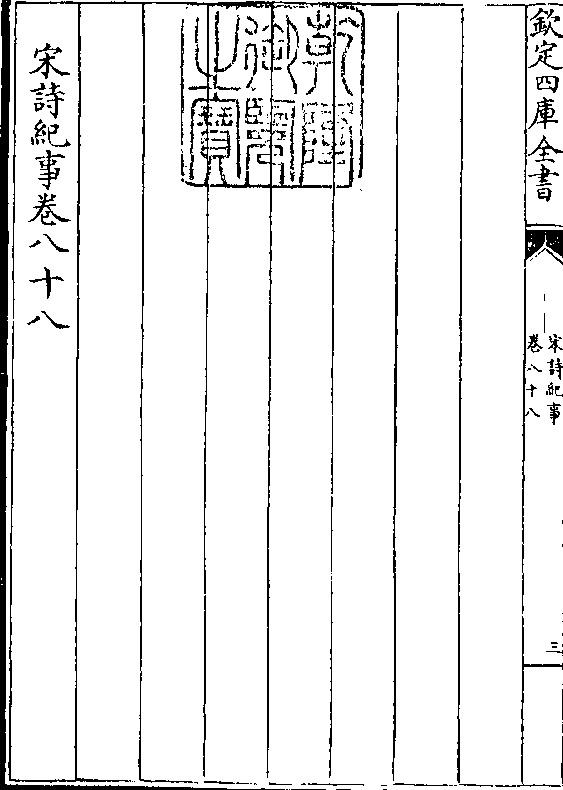 欽定四庫全書
宋詩紀事
卷八十八
三
乾隆
御覽
之寶
宋詩紀事卷八十八